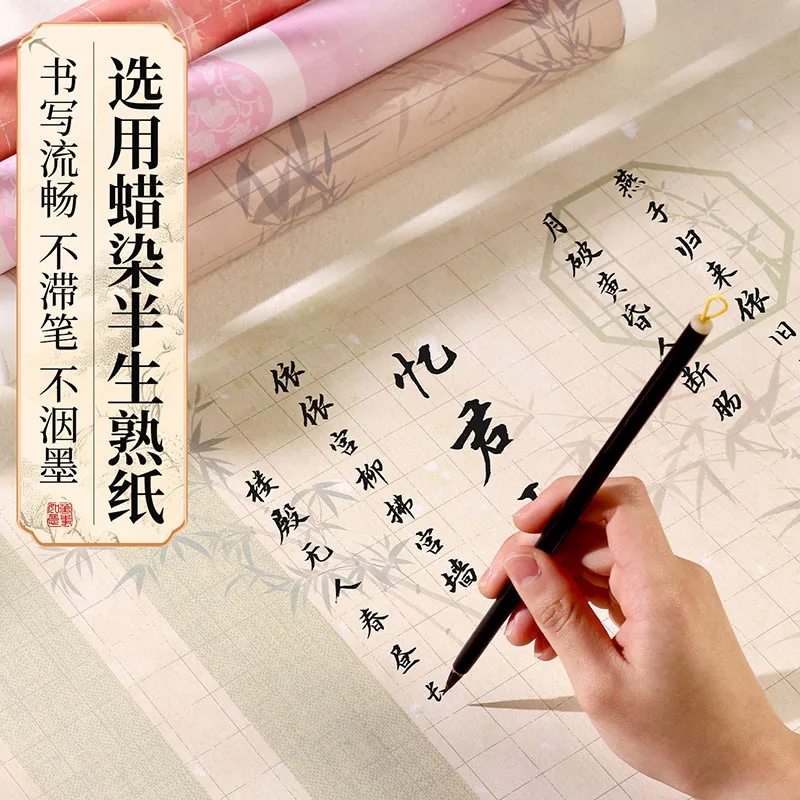 选用蜡染半生熟纸
书写流畅 不滞笔 不洇墨
燕子归来依旧
月破黄昏人断肠
忆君
依依宫柳拂宫墙
楼殿无人春昼长